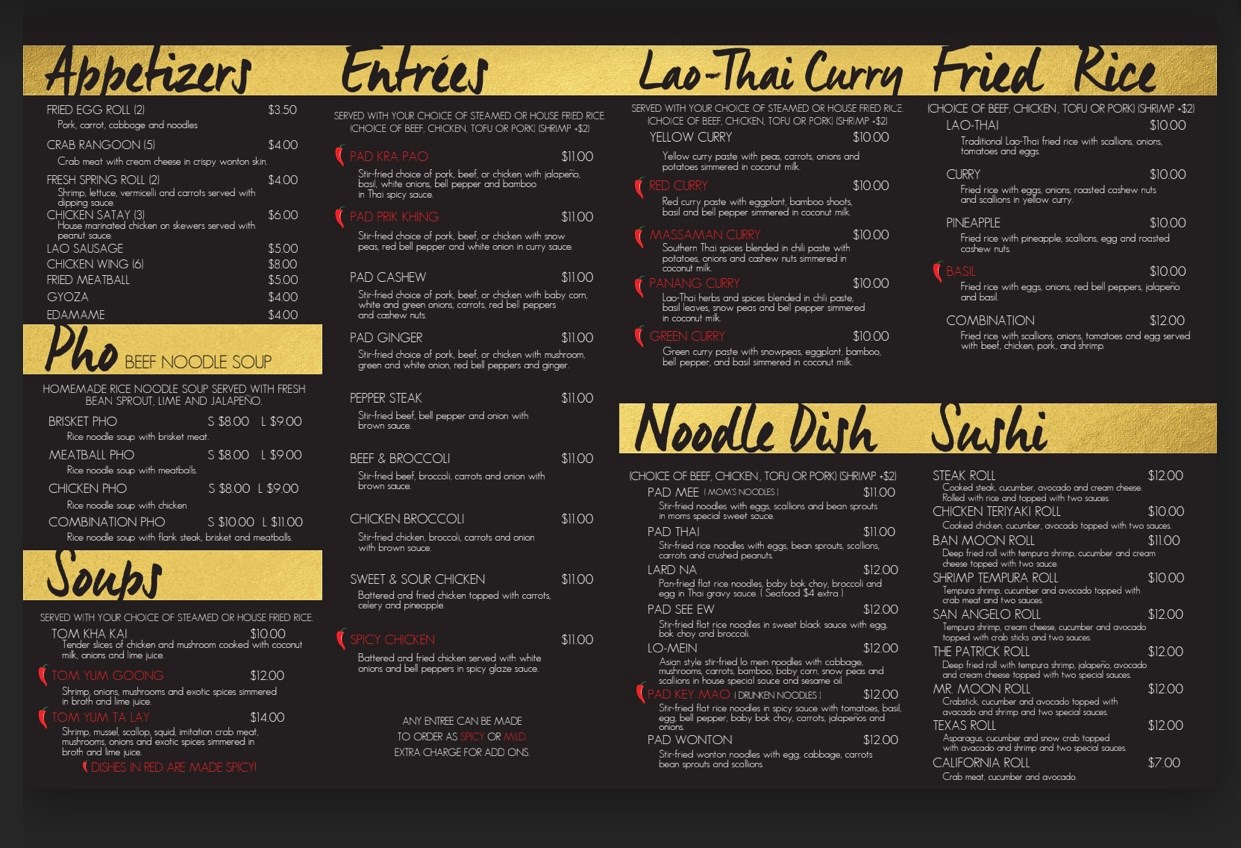 Appetizers
FRIED EGG ROLL (2) $3.50
Pork, carrot, cabbage and noodles
CRAB RANGOON (5) $4.00
Crab meat with cream cheese in crispy wonton skin.
FRESH SPRING ROLL (2) $4.00
Shrimp, lettuce, vermicelli and carrots served with
dipping sauce.
CHICKEN SATAY (3) $6.00
House marinated chicken on skewers served with
peanut sauce.
LAO SAUSAGE $5.00
CHICKEN WING (6) $8.00
FRIED MEATBALL $5.00
GYOZA $4.00
EDAMAME $4.00
Pho BEEF NOODLE SOUP
HOMEMADE RICE NOODLE SOUP SERVED WITH FRESH
BEAN SPROUT, LIME AND JALAPEÑO.
BRISKET PHO S $8.00 L $9.00
Rice noodle soup with brisket meat.
MEATBALL PHO S $8.00 L $9.00
Rice noodle soup with meatballs.
CHICKEN PHO S $8.00 L $9.00
Rice noodle soup with chicken
COMBINATION PHO S $10.00 L $11.00
Rice noodle soup with flank steak, brisket and meatballs.
Soups
SERVED WITH YOUR CHOICE OF STEAMED OR HOUSE FRIED RICE.
TOM KHA KAI $10.00
Tender slices of chicken and mushroom cooked with coconut
milk, onions and lime juice.
TOM YUM GOONG $12.00
Shrimp, onions, mushrooms and exotic spices simmered
in broth and lime juice.
TOM YUM TA LAY $14.00
Shrimp, mussel, scallop, squid, imitation crab meat,
mushrooms, onions and exotic spices simmered in
broth and lime juice.
DISHES IN RED ARE MADE SPICY!
Entrées
SERVED WITH YOUR CHOICE OF STEAMED OR HOUSE FRIED RICE
(CHOICE OF BEEF, CHICKEN, TOFU OR PORK) (SHRIMP +$2)
PAD KRA PAO $11.00
Stir-fried choice of pork, beef, or chicken with jalapeño,
basil, white onions, bell pepper and bamboo
in Thai spicy sauce.
PAD PRIK KHING $11.00
Stir-fried choice of pork, beef, or chicken with snow
peas, red bell pepper and white onion in curry sauce.
PAD CASHEW $11.00
Stir-fried choice of pork, beef, or chicken with baby corn,
white and green onions, carrots, red bell peppers
and cashew nuts.
PAD GINGER $11.00
Stir-fried choice of pork, beef, or chicken with mushroom,
green and white onion, red bell peppers and ginger.
PEPPER STEAK $11.00
Stir-fried beef, bell pepper and onion with
brown sauce.
BEEF & BROCCOLI $11.00
Stir-fried beef, broccoli, carrots and onion with
brown sauce.
CHICKEN BROCCOLI $11.00
Stir-fried chicken, broccoli, carrots and onion
with brown sauce.
SWEET & SOUR CHICKEN $11.00
Battered and fried chicken topped with carrots,
celery and pineapple.
SPICY CHICKEN $11.00
Battered and fried chicken served with white
onions and bell peppers in spicy glaze sauce.
ANY ENTREE CAN BE MADE
TO ORDER AS SPICY OR MILD.
EXTRA CHARGE FOR ADD ONS.
Lao-Thai Curry
SERVED WITH YOUR CHOICE OF STEAMED OR HOUSE FRIED RICE.
(CHOICE OF BEEF, CHICKEN, TOFU OR PORK) (SHRIMP +$2)
YELLOW CURRY $10.00
Yellow curry paste with peas, carrots, onions and
potatoes simmered in coconut milk.
RED CURRY $10.00
Red curry paste with eggplant, bamboo shoots,
basil and bell pepper simmered in coconut milk.
MASSAMAN CURRY $10.00
Southern Thai spices blended in chili paste with
potatoes, onions and cashew nuts simmered in
coconut milk.
PANANG CURRY $10.00
Lao-Thai herbs and spices blended in chili paste,
basil leaves, snow peas and bell pepper simmered
in coconut milk.
GREEN CURRY $10.00
Green curry paste with snowpeas, eggplant, bamboo,
bell pepper, and basil simmered in coconut milk.
Fried Rice
(CHOICE OF BEEF, CHICKEN, TOFU OR PORK) (SHRIMP +$2)
LAO-THAI $10.00
Traditional Lao-Thai fried rice with scallions, onions,
tomatoes and eggs.
CURRY $10.00
Fried rice with eggs, onions, roasted cashew nuts
and scallions in yellow curry.
PINEAPPLE $10.00
Fried rice with pineapple, scallions, egg and roasted
cashew nuts.
BASIL $10.00
Fried rice with eggs, onions, red bell peppers, jalapeño
and basil.
COMBINATION $12.00
Fried rice with scallions, onions, tomatoes and egg served
with beef, chicken, pork, and shrimp.
Noodle Dish
(CHOICE OF BEEF, CHICKEN, TOFU OR PORK) (SHRIMP +$2)
PAD MEE ( MOM'S NOODLES ) $11.00
Stir-fried noodles with eggs, scallions and bean sprouts
in moms special sweet sauce.
PAD THAI $11.00
Stir-fried rice noodles with eggs, bean sprouts, scallions,
carrots and crushed peanuts.
LARD NA $12.00
Pan-fried flat rice noodles, baby bok choy, broccoli and
egg in Thai gravy sauce. ( Seafood $4 extra )
PAD SEE EW $12.00
Stir-fried flat rice noodles in sweet black sauce with egg,
bok choy and broccoli.
LO-MEIN $12.00
Asian style stir-fried lo mein noodles with cabbage,
mushrooms, carrots, bamboo, baby corn, snow peas and
scallions in house special sauce and sesame oil.
PAD KEY MAO ( DRUNKEN NOODLES ) $12.00
Stir-fried flat rice noodles in spicy sauce with tomatoes, basil,
egg, bell pepper, baby bok choy, carrots, jalapeños and
onions.
PAD WONTON $12.00
Stir-fried wonton noodles with egg, cabbage, carrots
bean sprouts and scallions.
Sushi
STEAK ROLL $12.00
Cooked steak, cucumber, avocado and cream cheese.
Rolled with rice and topped with two sauces.
CHICKEN TERIYAKI ROLL $10.00
Cooked chicken, cucumber, avocado topped with two sauces.
BAN MOON ROLL $11.00
Deep fried roll with tempura shrimp, cucumber and cream
cheese topped with two sauce.
SHRIMP TEMPURA ROLL $10.00
Tempura shrimp, cucumber and avocado topped with
crab meat and two sauces.
SAN ANGELO ROLL $12.00
Tempura shrimp, cream cheese, cucumber and avocado
topped with crab sticks and two sauces.
THE PATRICK ROLL $12.00
Deep fried roll with tempura shrimp, jalapeño, avocado
and cream cheese topped with two special sauces.
MR. MOON ROLL $12.00
Crabstick, cucumber and avocado topped with
avacado and shrimp and two special sauces.
TEXAS ROLL $12.00
Asparagus, cucumber and snow crab topped
with avacado and shrimp and two special sauces.
CALIFORNIA ROLL $7.00
Crab meat, cucumber and avocado.